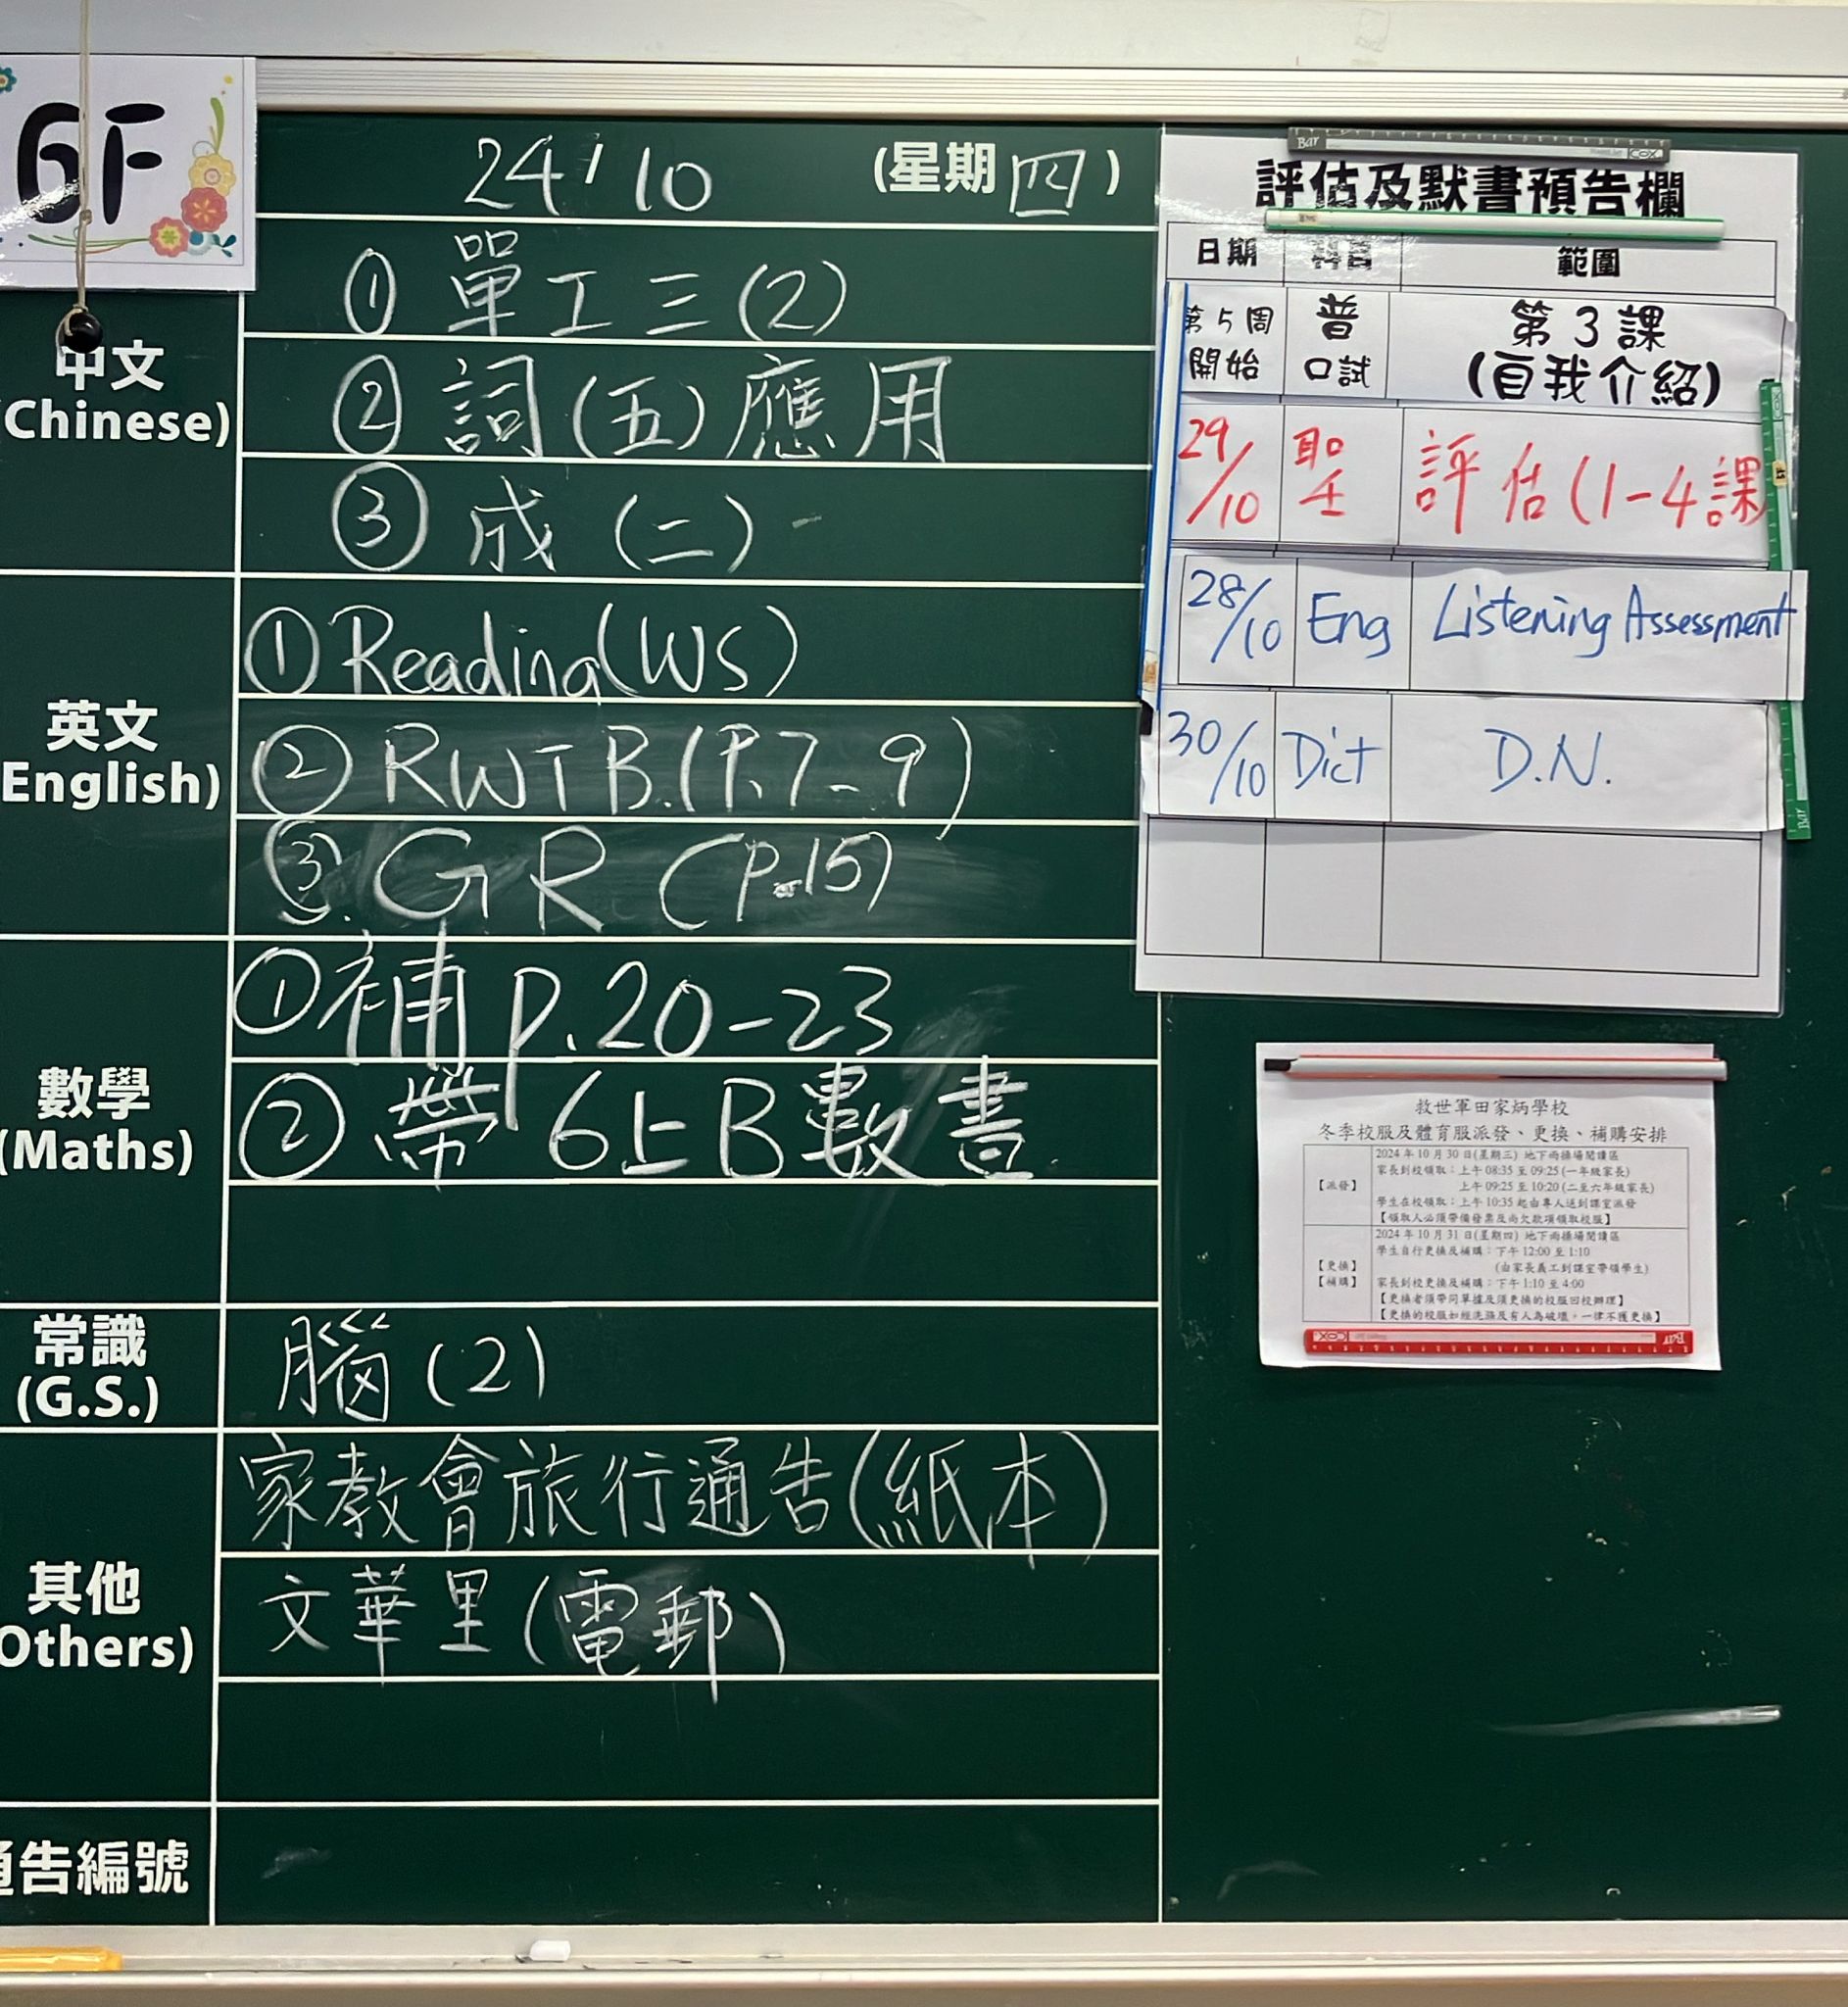 6F
24/10 (星期四)
中文
(Chinese)
① 單工三(2)
② 詞(五)應用
③ 成(二)
英文
English)
① Reading(WS)
② RWTB.(P.7-9)
③. GR (P.15)
數學
(Maths)
① 補 P.20-23
② 帶 6上B數書
常識
(G.S.)
腦(2)
其他
Others)
家教會旅行通告(紙本)
文華里(電郵)
通告編號
評估及默書預告欄
日期 科目 範圍
第5周開始 普口試 第3課(自我介紹)
29/10 聖 評估(1-4課
28/10 Eng Listening Assessment
30/10 Dict D.N.
救世軍田家炳學校
冬季校服及體育服派發、更換、補購安排
【派發】
2024年10月30日(星期三) 地下雨操場閱讀區
家長到校領取：上午08:35至09:25(一年級家長)
上午09:25至10:20(二至六年級家長)
學生在校領取：上午10:35起由專人送到課室派發
【領取人必須帶備發票及尚欠款項領取校服】
【更換】
【補購】
2024年10月31日(星期四) 地下雨操場閱讀區
學生自行更換及補購：下午12:00至1:10
(由家長義工到課室帶領學生)
家長到校更換及補購：下午1:10至4:00
【更換者須帶同單據及須更換的校服回校辦理】
【更換的校服如經洗滌及有人為破壞，一律不獲更換】